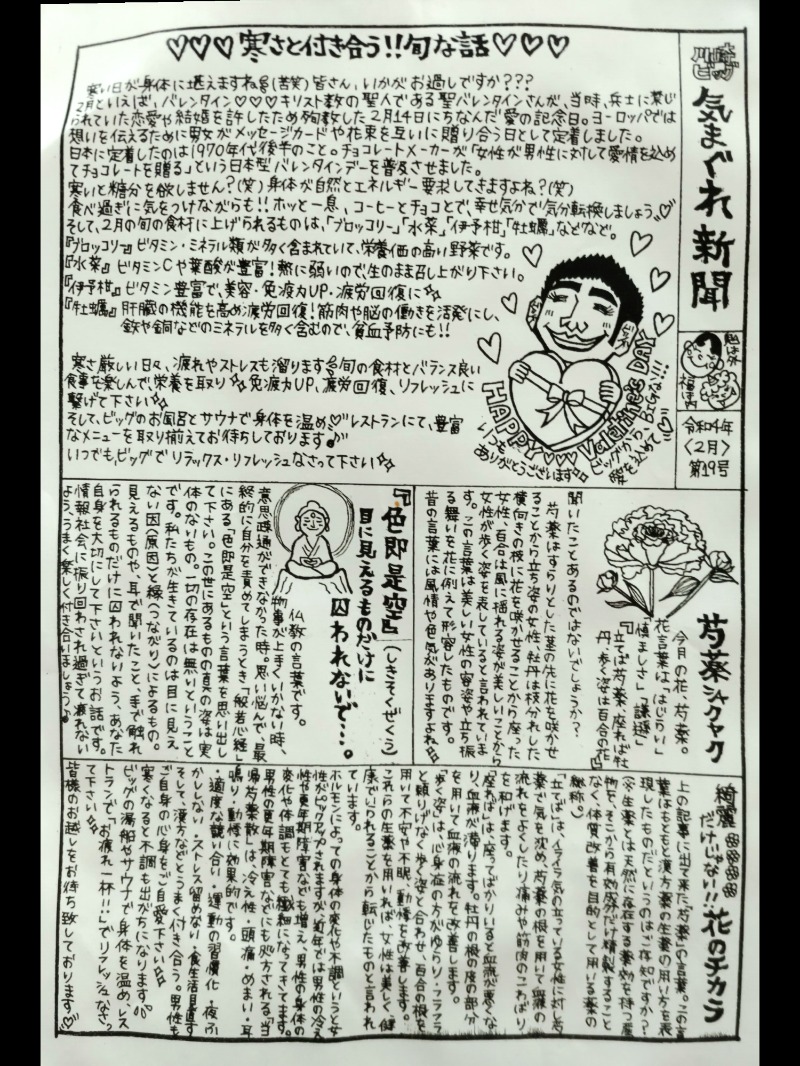 川崎ビッグ
気まぐれ新聞
鬼は外
福は内
令和4年
〈2月〉
第19号
♡♡♡寒さと付き合う!!旬な話♡♡♡
寒い日が身体に堪えますね(苦笑)皆さん、いかがお過しですか???
2月といえば、バレンタイン♡♡♡キリスト教の聖人である聖バレンタインさんが、当時、兵士に禁じ
られていた恋愛や結婚を許したため殉教した2月14日にちなんだ愛の記念日。ヨーロッパでは
想いを伝えるために男女がメッセージカードや花束を互いに贈り合う日として定着しました。
日本に定着したのは1970年代後半のこと。チョコレートメーカーが「女性が男性に対して愛情を込め
てチョコレートを贈る」という日本型バレンタインデーを普及させました。
寒いと糖分を欲しません?(笑)身体が自然とエネルギー要求してきますよね?(笑)
食べ過ぎに気をつけながらも!!ホッと一息、コーヒーとチョコとで、幸せ気分で気分転換しましょう♡
そして、2月の旬の食材に上げられるものは、「ブロッコリー」「水菜」「伊予柑」「牡蠣」などなど。
『ブロッコリー』ビタミン・ミネラル類が多く含まれていて、栄養価の高い野菜です。
『水菜』ビタミンCや葉酸が豊富!熱に弱いので、生のまま召し上がり下さい。
『伊予柑』ビタミン豊富で、美容・免疫力UP・疲労回復に
『牡蠣』肝臓の機能を高め疲労回復!筋肉や脳の働きを活発にし、
鉄や銅などのミネラルを多く含むので、貧血予防にも!!
寒さ厳しい日々、疲れやストレスも溜ります旬の食材とバランス良い
食事を楽しんで、栄養を取り免疫力UP、疲労回復、リフレッシュに
繋げて下さい
そして、ビッグのお風呂とサウナで身体を温め♡レストランにて、豊富
なメニューを取り揃えてお待ちしております♪
いつでも、ビッグでリラックス・リフレッシュなさって下さい
HAPPY♡♡♡Valentine's DAY
いつも
ありがとうございます
ビッグから、BIGな!!!
愛を込めて
芍薬シャクヤク
今月の花、芍薬。
花言葉は「はじらい」
「慎ましさ」「謙遜」
『立てば芍薬、座れば牡
丹、歩く姿は百合の花』
聞いたことあるのではないでしょうか?
芍薬はすらりとした茎の先に花を咲かせ
ることから立ち姿の女性、牡丹は枝分れした
横向きの枝に花を咲かせることから座った
女性、百合は風に揺れる姿が美しいことから
女性が歩く姿を表していると言われていま
す。この言葉は美しい女性の容姿や立ち振
る舞いを花に例えて形容したものです。
昔の言葉には風情や色気がありますよね
『色即是空』(しきそくぜくう)
目に見えるものだけに
囚われないで…。
仏教の言葉です。
物事が上手くいかない時、
意思疎通ができなかった時。思い悩んで、最
終的に自分を責めてしまうとき「般若心経」
にある、「色即是空」という言葉を思い出し
て下さい。この世にあるものの真の姿は実
体のないもの、一切の存在は無いということ
です。私たちが生きているのは目に見え
ない因(原因)と縁(つながり)によるもの。
見えるものや、耳で聞いたこと、手で触れ
られるものだけに囚われないよう、あなた
自身を大切にして下さいというお話です。
情報社会に振り回され過ぎて疲れない
よう、うまく楽しく付き合いましょう♪
綺麗だけじゃない!!花のチカラ
上の記事に出て来た「芍薬」の言葉。この言
葉はもともと漢方薬の生薬の用い方を表
現したものだというのはご存知ですか?
(※生薬とは天然に存在する薬効を持つ産
物を、そこから有効成分だけ精製すること
なく、体質改善を目的として用いる薬の
総称。)
「立てば」は、イライラ気の立っている女性に対し芍
薬で気を沈め、芍薬の根を用いて血液の
流れをよくしたり痛みや筋肉のこわばり
を和げます。
「座れば」は、座ってばかりいると血流が悪くな
り、血液が滞ります。牡丹の根の皮の部分
を用いて血液の流れを改善します。
「歩く姿」は、心身症の方がゆらり・フラフラ
と頼りげなく歩く姿と合わせ、百合の根を
用いて不安や不眠、動悸を改善します。
これらの生薬を用いれば、女性は美しく健
康でいられることから転じたものと言われ
ています。
ホルモンによっての身体の変化や不調というと女
性がピックアップされますが、近年では男性の冷え
性や更年期障害なども増え、男性の身体の
変化や体調もとても繊細になってきてます。
男性の更年期障害などにも処方される「当
帰芍薬散」は、冷え性・頭痛・めまい・耳
鳴り・動悸に効果的です。
・適度な競い合い・運動の習慣化・夜ふ
かししない・ストレス留めない・食生活見直す
そして、漢方などとうまく付き合う。男性も
ご自身の心身をご自愛下さい
寒くなると不調も出がちになります。
ビッグの湯船やサウナで身体を温め、レス
トランで「お疲れ一杯!!」でリフレッシュなさっ
て下さい
皆様のお越しをお待ち致しております♡